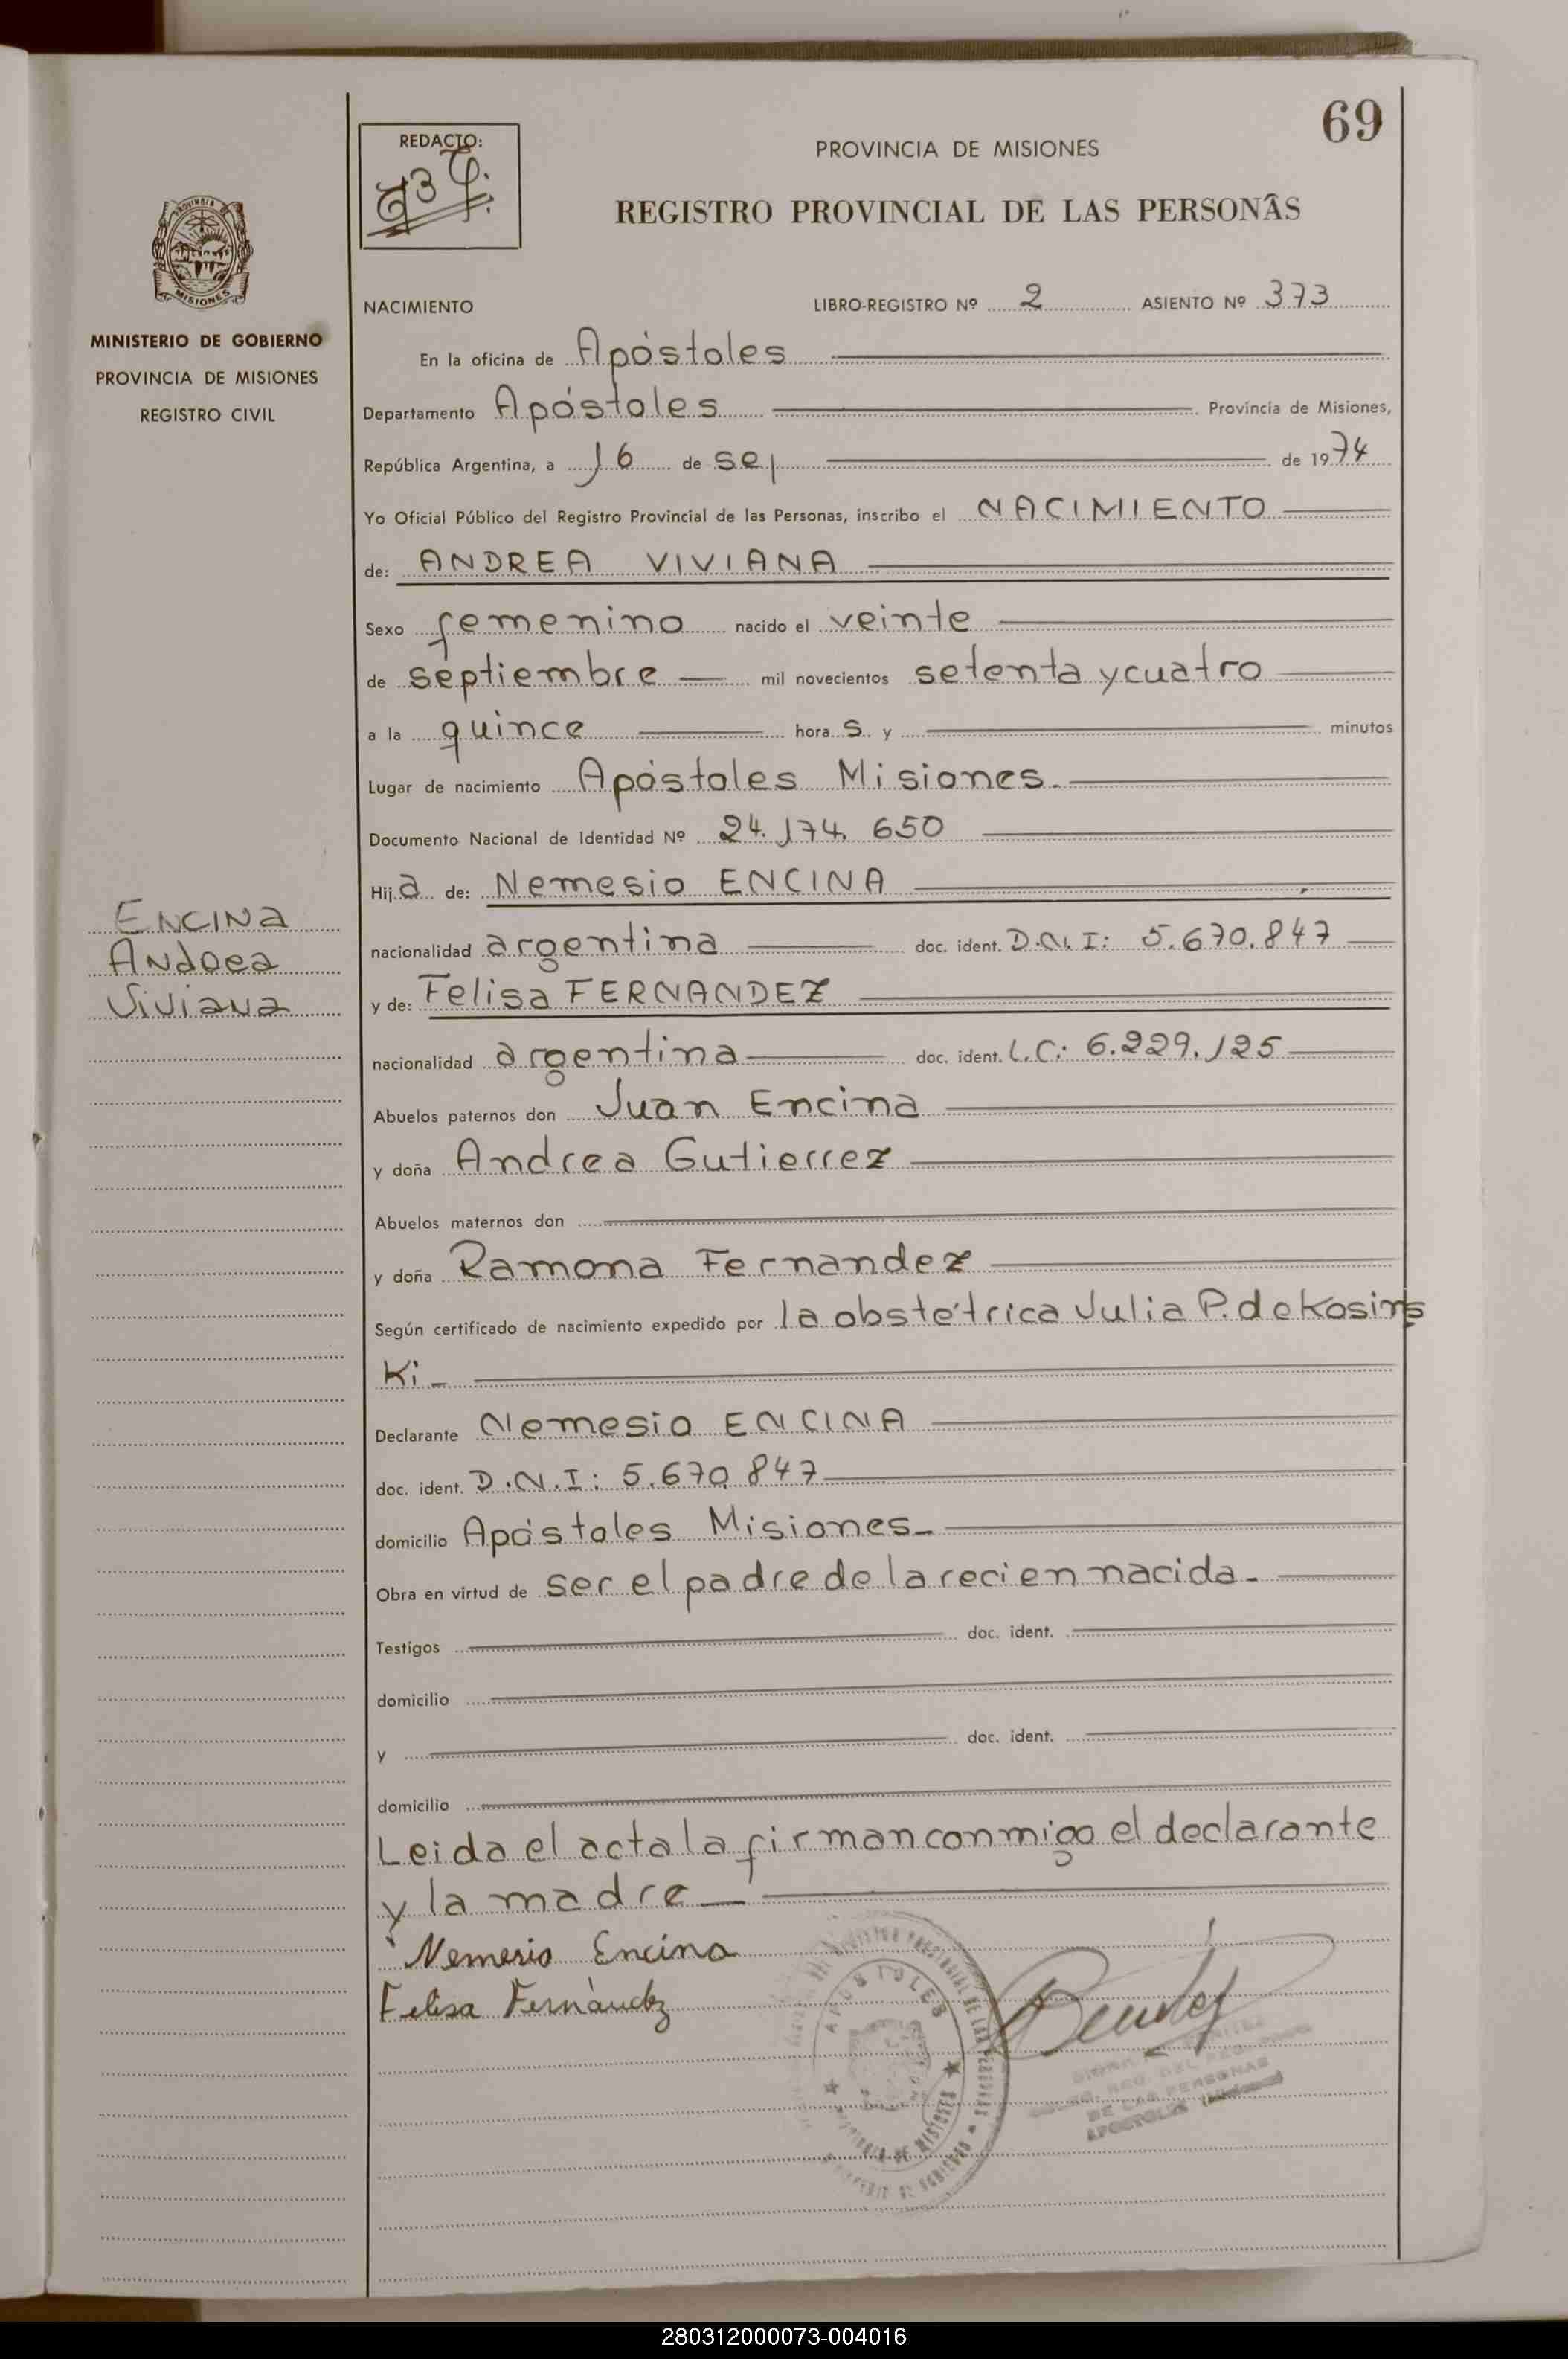 69
REDACTO:
PROVINCIA DE MISIONES
REGISTRO PROVINCIAL DE LAS PERSONAS
MISIONES
MINISTERIO DE GOBIERNO
PROVINCIA DE MISIONES
REGISTRO CIVIL
NACIMIENTO LIBRO-REGISTRO Nº 2 ASIENTO Nº 373
En la oficina de Apóstoles
Departamento Apóstoles Provincia de Misiones,
República Argentina, a 16 de de 1974
Yo Oficial Público del Registro Provincial de las Personas, inscribo el NACIMIENTO
de: ANDREA VIVIANA
Sexo femenino nacido el veinte
de septiembre mil novecientos setenta y cuatro
a la quince hora s y minutos
Lugar de nacimiento Apóstoles Misiones.
Documento Nacional de Identidad Nº 24.174.650
Hija de: Nemesio ENCINA
ENCINA
Andrea
Viviana
nacionalidad argentina doc. ident. D.N.I: 5.670.847
y de: Felisa FERNANDEZ
nacionalidad argentina doc. ident. L.C: 6.229.125
Abuelos paternos don Juan Encina
y doña Andrea Gutierrez
Abuelos maternos don
y doña Ramona Fernandez
Según certificado de nacimiento expedido por la obstétrica Julia P. de Kosins
Ki-
Declarante Nemesio ENCINA
doc. ident. D.N.I: 5.670.847
domicilio Apóstoles Misiones-
Obra en virtud de ser el padre de la recien nacida-
Testigos doc. ident.
domicilio
y doc. ident.
domicilio
Leida el acta la firman conmigo el declarante
y la madre-
Nemesio Encina
Felisa Fernández
APOSTOLES
DE LAS PERSONAS
280312000073-004016